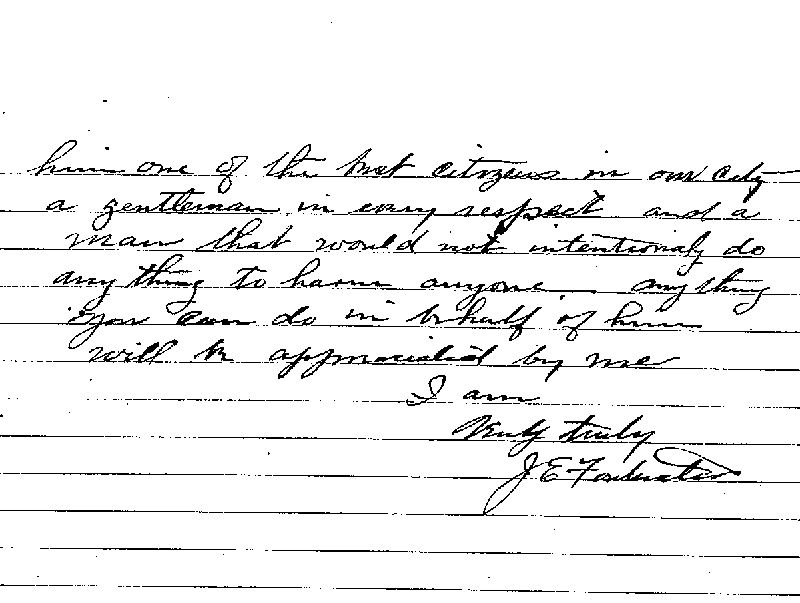 him one of the best citizens in our city
a gentleman in every respect and a
man that would not intentionaly do
any thing to harm anyone. any thing
you can do in behalf of him
will be appreciated by me
I am
truly
J E